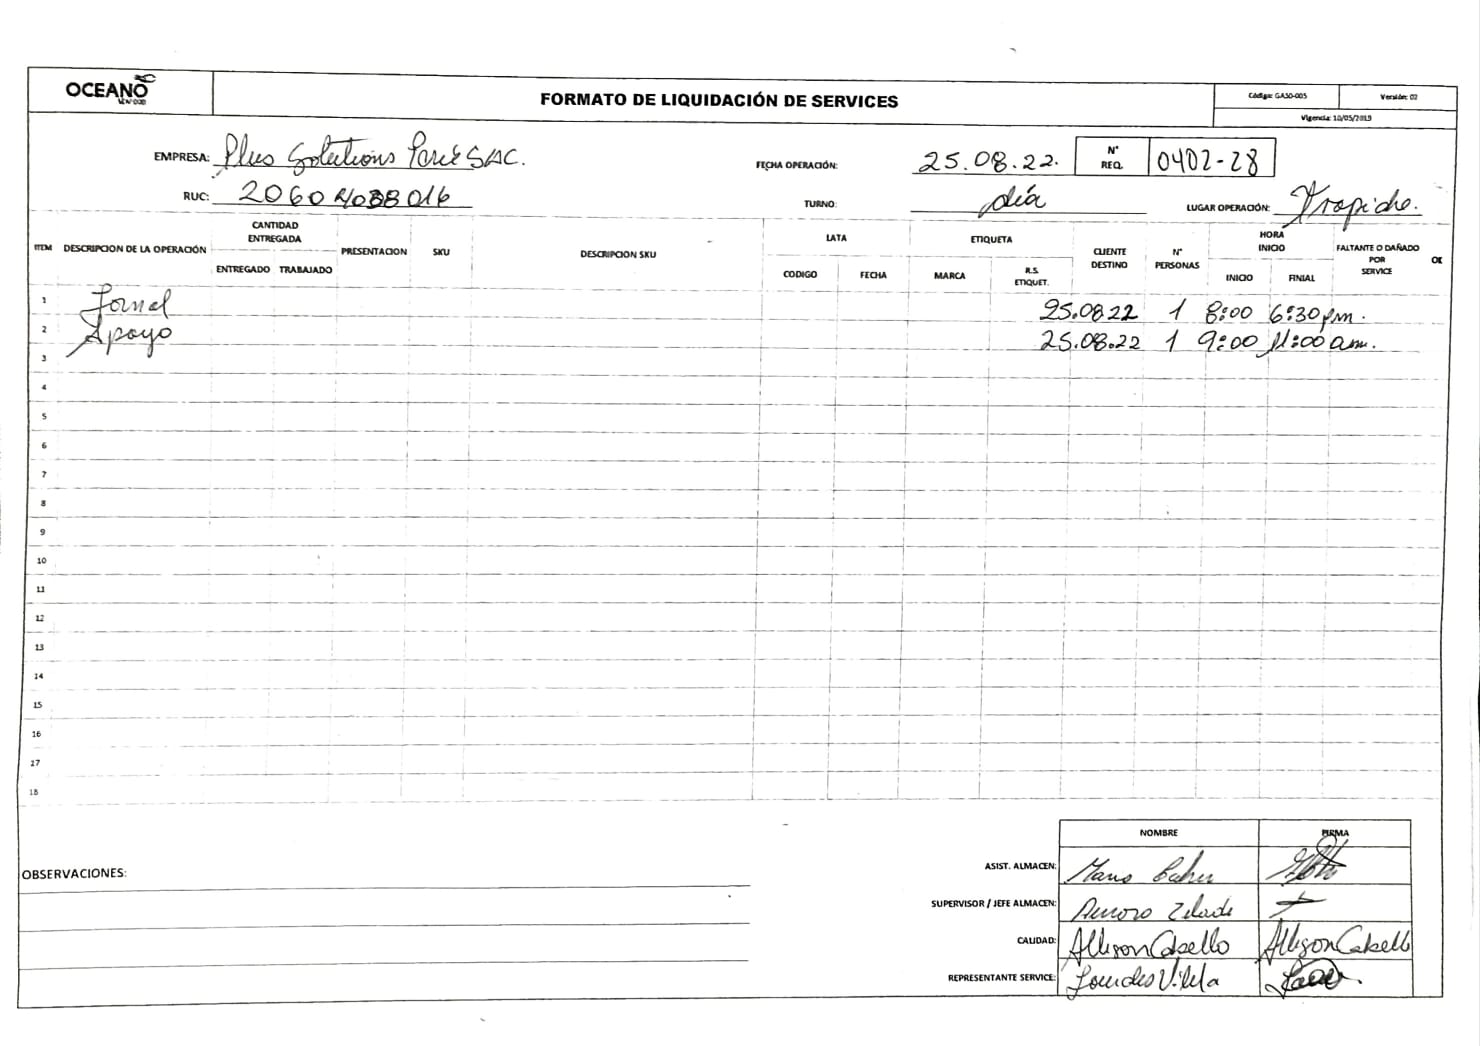 OCEANO
FORMATO DE LIQUIDACIÓN DE SERVICES
Código: GASO-005
Versión: 02
Vigencia: 10/05/2019
EMPRESA: Plus Solutions Perú SAC.
FECHA OPERACIÓN: 25.08.22.
N° REQ. 0402-28
RUC:
TURNO: día
LUGAR OPERACIÓN: Trapiche.
ITEM DESCRIPCION DE LA OPERACIÓN CANTIDAD ENTREGADA PRESENTACION SKU DESCRIPCION SKU LATA ETIQUETA CLIENTE DESTINO N° PERSONAS HORA INICIO FALTANTE O DAÑADO POR SERVICE
ENTREGADO TRABAJADO CODIGO FECHA MARCA R.S. ETIQUET. INICIO FINIAL
1 Jornal 25.08.22 1 8:00 6:30 pm.
2 Apoyo 25.08.22 1 9:00 11:00 am.
3
4
5
6
7
8
9
10
11
12
13
14
15
16
17
18
NOMBRE FIRMA
OBSERVACIONES:
ASIST. ALMACEN:
SUPERVISOR / JEFE ALMACEN:
CALIDAD: Allison Cabello Allison Cabello
REPRESENTANTE SERVICE: Lourdes Vilela